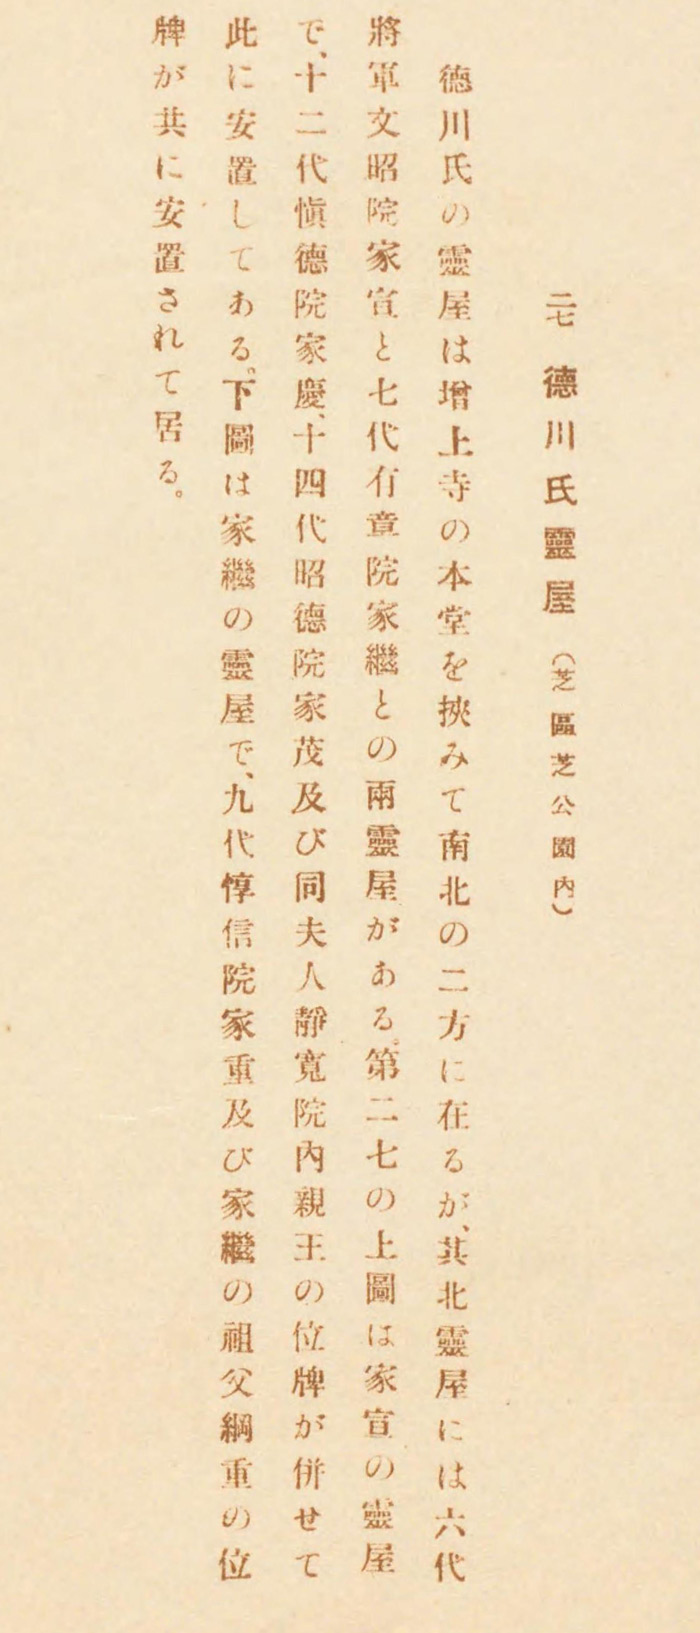 二七 德川氏靈屋 （芝區芝公園內）
德川氏の靈屋は增上寺の本堂を挾みて南北の二方に在るが、其北靈屋には六代
將軍文昭院家宣と七代有章院家繼との兩靈屋がある。第二七の上圖は家宣の靈屋
で、十二代愼德院家慶、十四代昭德院家茂及び同夫人靜寬院內親王の位牌が併せて
此に安置してある。下圖は家繼の靈屋で、九代惇信院家重及び家繼の祖父綱重の位
牌が共に安置されて居る。